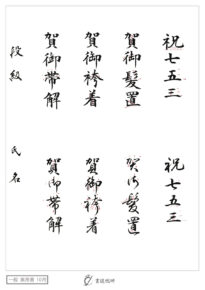 祝七五三
賀御髪置
賀御袴着
賀御帯解
段級
祝七五三
賀御髪置
賀御袴着
賀御帯解
氏名
一般 実用書 10月